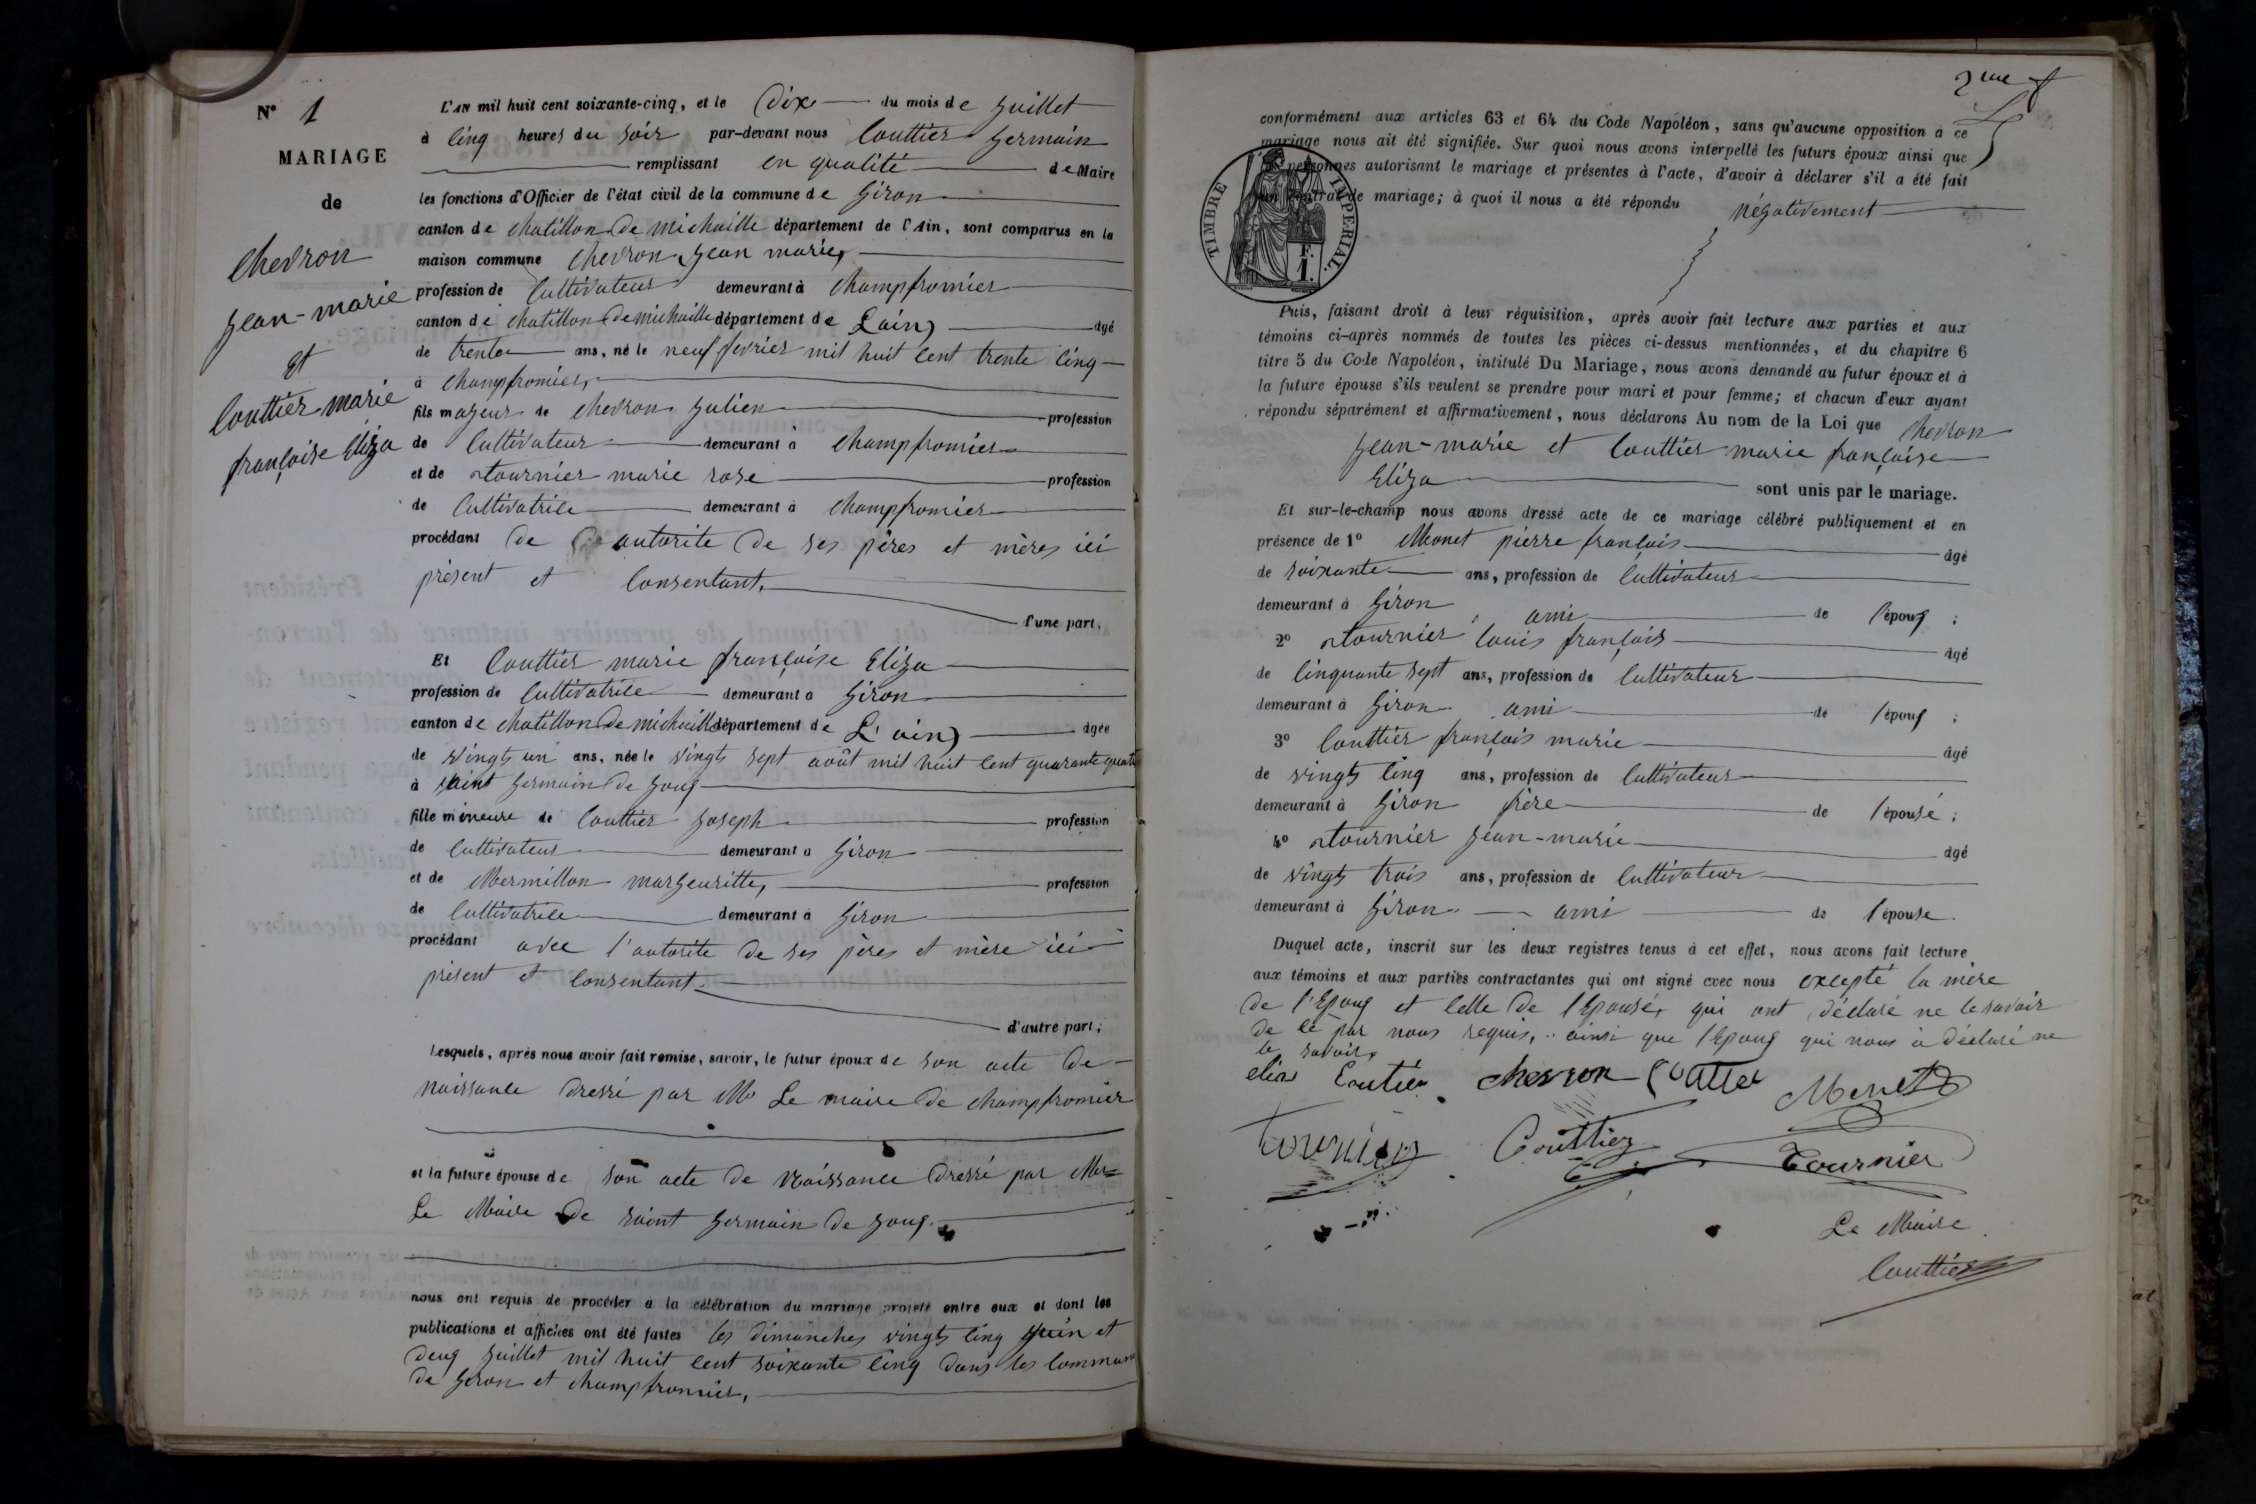 N° 1
MARIAGE
de
chevron
jean-marie
et
Couttier marie
françoise Eliza
L'AN mil huit cent soixante-cinq, et le Dix du mois de juillet
à cinq heures du soir par-devant nous Couttier germain
remplissant en qualité de Maire
les fonctions d'Officier de l'état civil de la commune de giron
canton de chatillon de michaille département de l'Ain, sont comparus en la
maison commune chevron jean marie,
profession de Cultivateur demeurant à champfromier
canton de chatillon de michaille département de Lain, âgé
de trente ans, né le neuf fevrier mil huit cent trente cinq
à champfromier,
fils majeur de chevron julien profession
de Cultivateur demeurant à champfromier
et de tournier marie rose profession
de Cultivatrice demeurant à champfromier
procédant de autorite de ses pères et mères ici
présent et Consentant,
d'une part,
Et Couttier marie françoise Eliza
profession de Cultivatrice demeurant à giron
canton de chatillon de michaille département de L'ain, âgée
de vingts un ans, née le vingts sept août mil huit cent quarante quatre
à saint germain de joux
fille mineure de Couttier joseph profession
de Cultivateur demeurant à giron
et de Mermillon margeuritte, profession
de Cultivatrice demeurant à giron
procédant avec l'autorite de ses pères et mère ici
présent et Consentant.
d'autre part;
Lesquels, après nous avoir fait remise, savoir, le futur époux de son acte de
naissance dressé par Mr Le maire de champfromier
et la future épouse de son acte de naissance dressé par Mr
Le Maire de saint germain de joux.
nous ont requis de procéder à la célébration du mariage projeté entre eux et dont les
publications et affiches ont été faites les dimanches vingts cinq juin et
deux juillet mil huit cent soixante cinq dans les commune
de giron et champfromier,
2me f
conformément aux articles 63 et 64 du Code Napoléon, sans qu'aucune opposition à ce
mariage nous ait été signifiée. Sur quoi nous avons interpellé les futurs époux ainsi que
personnes autorisant le mariage et présentes à l'acte, d'avoir à déclarer s'il a été fait
un contrat de mariage; à quoi il nous a été répondu négativement
TIMBRE IMPERIAL.
F.
1.
Puis, faisant droit à leur réquisition, après avoir fait lecture aux parties et aux
témoins ci-après nommés de toutes les pièces ci-dessus mentionnées, et du chapitre 6
titre 5 du Code Napoléon, intitulé Du Mariage, nous avons demandé au futur époux et à
la future épouse s'ils veulent se prendre pour mari et pour femme; et chacun d'eux ayant
répondu séparément et affirmativement, nous déclarons Au nom de la Loi que chevron
jean-marie et Couttier marie françoise
Eliza sont unis par le mariage.
Et sur-le-champ nous avons dressé acte de ce mariage célébré publiquement et en
présence de 1° Monet pierre françois âgé
de soixante ans, profession de Cultivateur
demeurant à giron ami de l'époux ;
2° tournier louis françois âgé
de cinquante sept ans, profession de Cultivateur
demeurant à giron ami de l'époux ;
3° Couttier françois marie âgé
de vingts cinq ans, profession de Cultivateur
demeurant à giron frère de l'épousé ;
4° tournier jean-marie âgé
de vingts trois ans, profession de Cultivateur
demeurant à giron ami de l'épouse
Duquel acte, inscrit sur les deux registres tenus à cet effet, nous avons fait lecture
aux témoins et aux parties contractantes qui ont signé avec nous excepté la mère
de l'Epoux et celle de l'Epousé, qui ont déclaré ne le savoir
de ce par nous requis, ainsi que l'Epoux qui nous à déclaré ne
le savoir,
elisa Coutier chevron Monet
tournier Couttier Tournier
Le Maire
Couttier